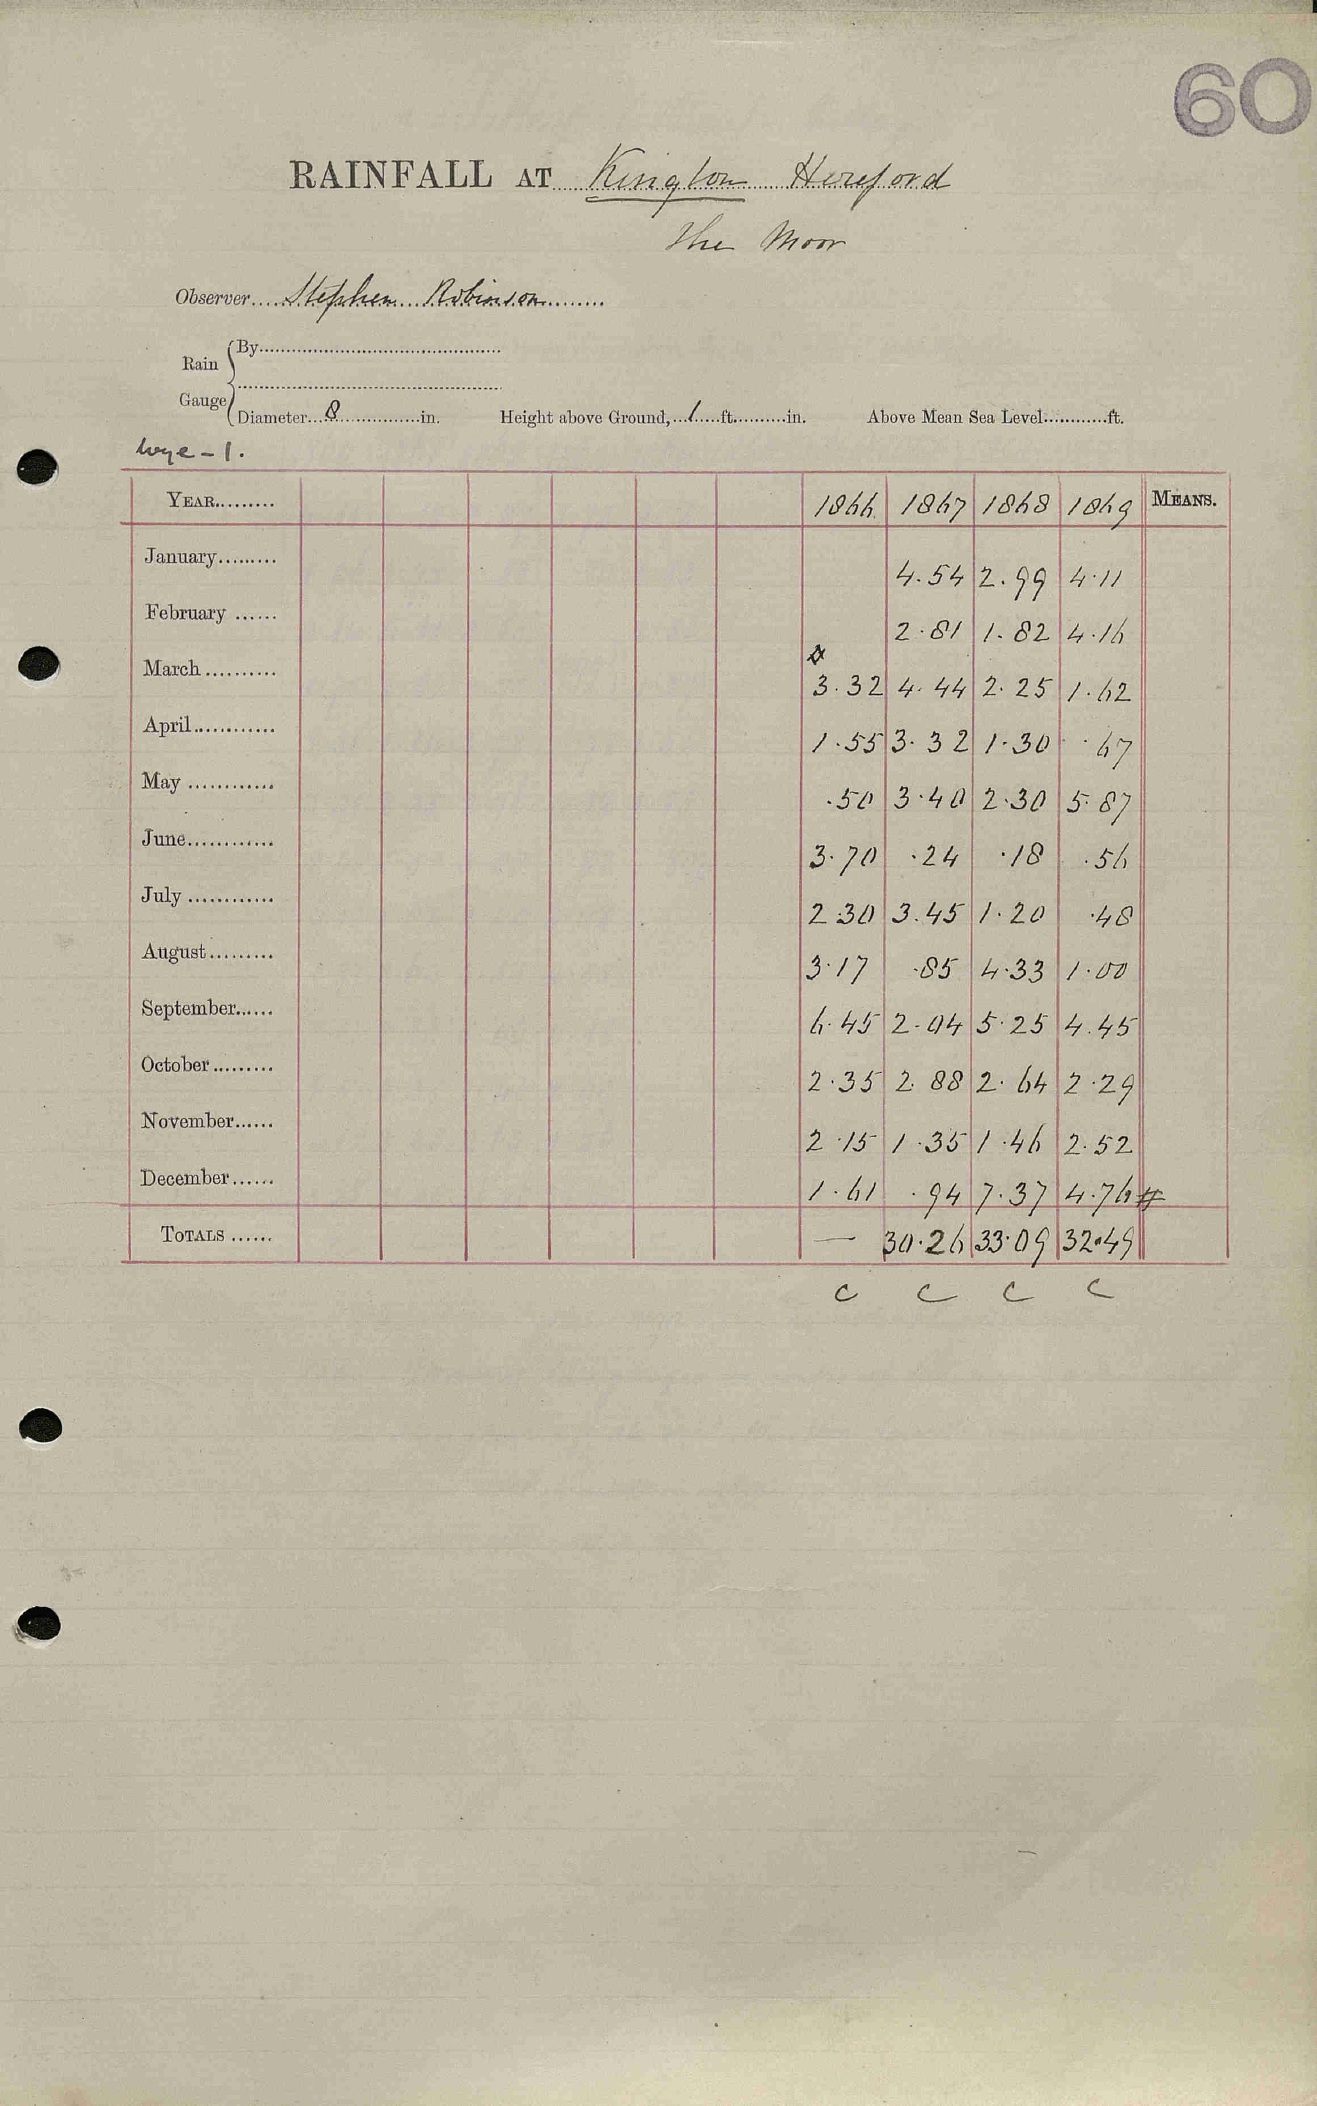 60
RAINFALL AT Kington Hereford
The Moor
Observer Stephen Robinson
Rain Gauge
By
Diameter 8 in. Height above Ground, 1 ft. in. Above Mean Sea Level ft.
Wye - 1.
YEAR 1866 1867 1868 1869 MEANS.
January 4.54 2.99 4.11
February 2.81 1.82 4.16
March 3.32 4.44 2.25 1.62
April 1.55 3.32 1.30 .67
May .50 3.40 2.30 5.87
June 3.70 .24 .18 .56
July 2.30 3.45 1.20 .48
August 3.17 .85 4.33 1.00
September 6.45 2.04 5.25 4.45
October 2.35 2.88 2.64 2.29
November 2.15 1.35 1.46 2.52
December 1.61 .94 7.37 4.76 #
TOTALS — 30.26 33.09 32.49
C C C C